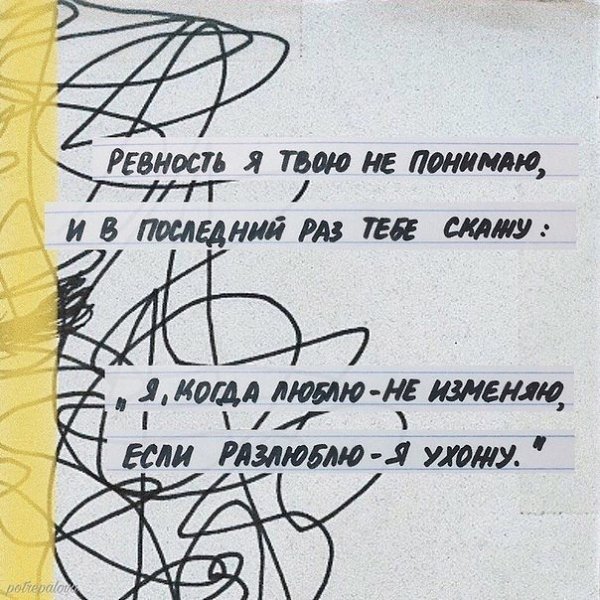 РЕВНОСТЬ Я ТВОЮ НЕ ПОНИМАЮ,
И В ПОСЛЕДНИЙ РАЗ ТЕБЕ СКАЖУ:
„Я, КОГДА ЛЮБЛЮ-НЕ ИЗМЕНЯЮ,
ЕСЛИ РАЗЛЮБЛЮ-Я УХОЖУ."